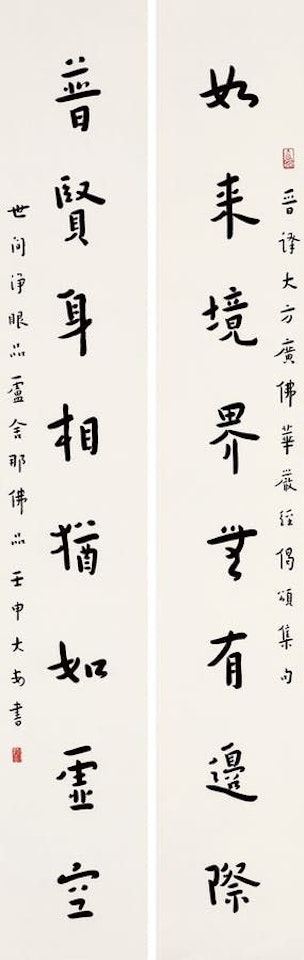 晋譯大方廣佛華嚴經偈頌集句
如来境界無有邊際
普賢身相猶如虛空
世间淨眼品盧舍那佛品壬申大安書